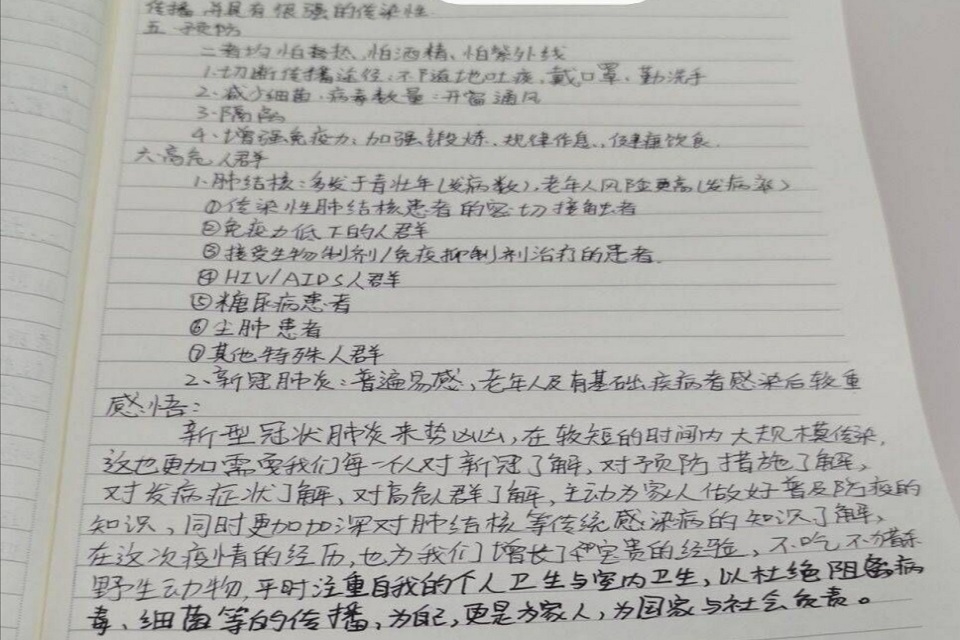 传播并具有很强的传染性
五 预防
二者均怕高热,怕酒精、怕紫外线
1.切断传播途径:不随地吐痰、戴口罩、勤洗手
2、减少细菌、病毒数量:开窗通风
3、隔离
4、增强免疫力:加强锻炼、规律作息、健康饮食.
六高危人群
1、肺结核:多发于青壮年(发病数),老年人风险更高(发病率)
①传染性肺结核患者的密切接触者
②免疫力低下的人群
③接受生物制剂/免疫抑制剂治疗的患者.
④HIV/AIDS人群
⑤糖尿病患者
⑥尘肺患者
⑦其他特殊人群
2、新冠肺炎:普遍易感,老年人及有基础疾病者感染后较重
感悟:
新型冠状肺炎来势凶凶,在较短的时间内大规模传染,
这也更加需要我们每一人对新冠了解,对预防措施了解,
对发病症状了解,对高危人群了解,主动为家人做好普及防疫的
知识、同时更加加深对肺结核等传统感染病的知识了解,
在这次疫情的经历,也为我们增长了宝贵的经验,不吃不
野生动物,平时注重自我的个人卫生与室内卫生,以杜绝阻病
毒、细菌等的传播,为自己,更是为家人,为国家与社会负责。